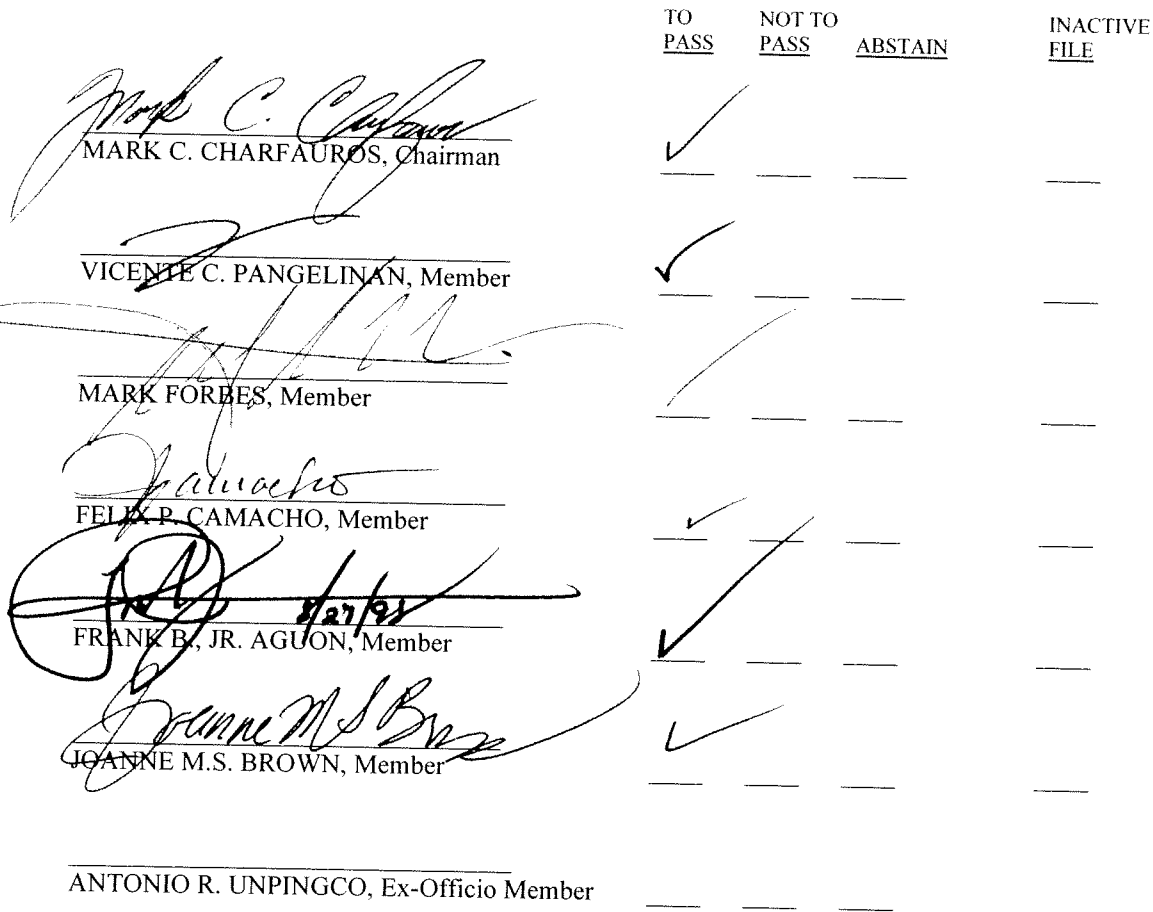 TO PASS NOT TO PASS ABSTAIN INACTIVE FILE
Mark C. Charfauros
MARK C. CHARFAUROS, Chairman
VICENTE C. PANGELINAN, Member
MARK FORBES, Member
FCamacho
FELIX P. CAMACHO, Member
8/27/98
FRANK B., JR. AGUON, Member
Joanne M S Brown
JOANNE M.S. BROWN, Member
ANTONIO R. UNPINGCO, Ex-Officio Member